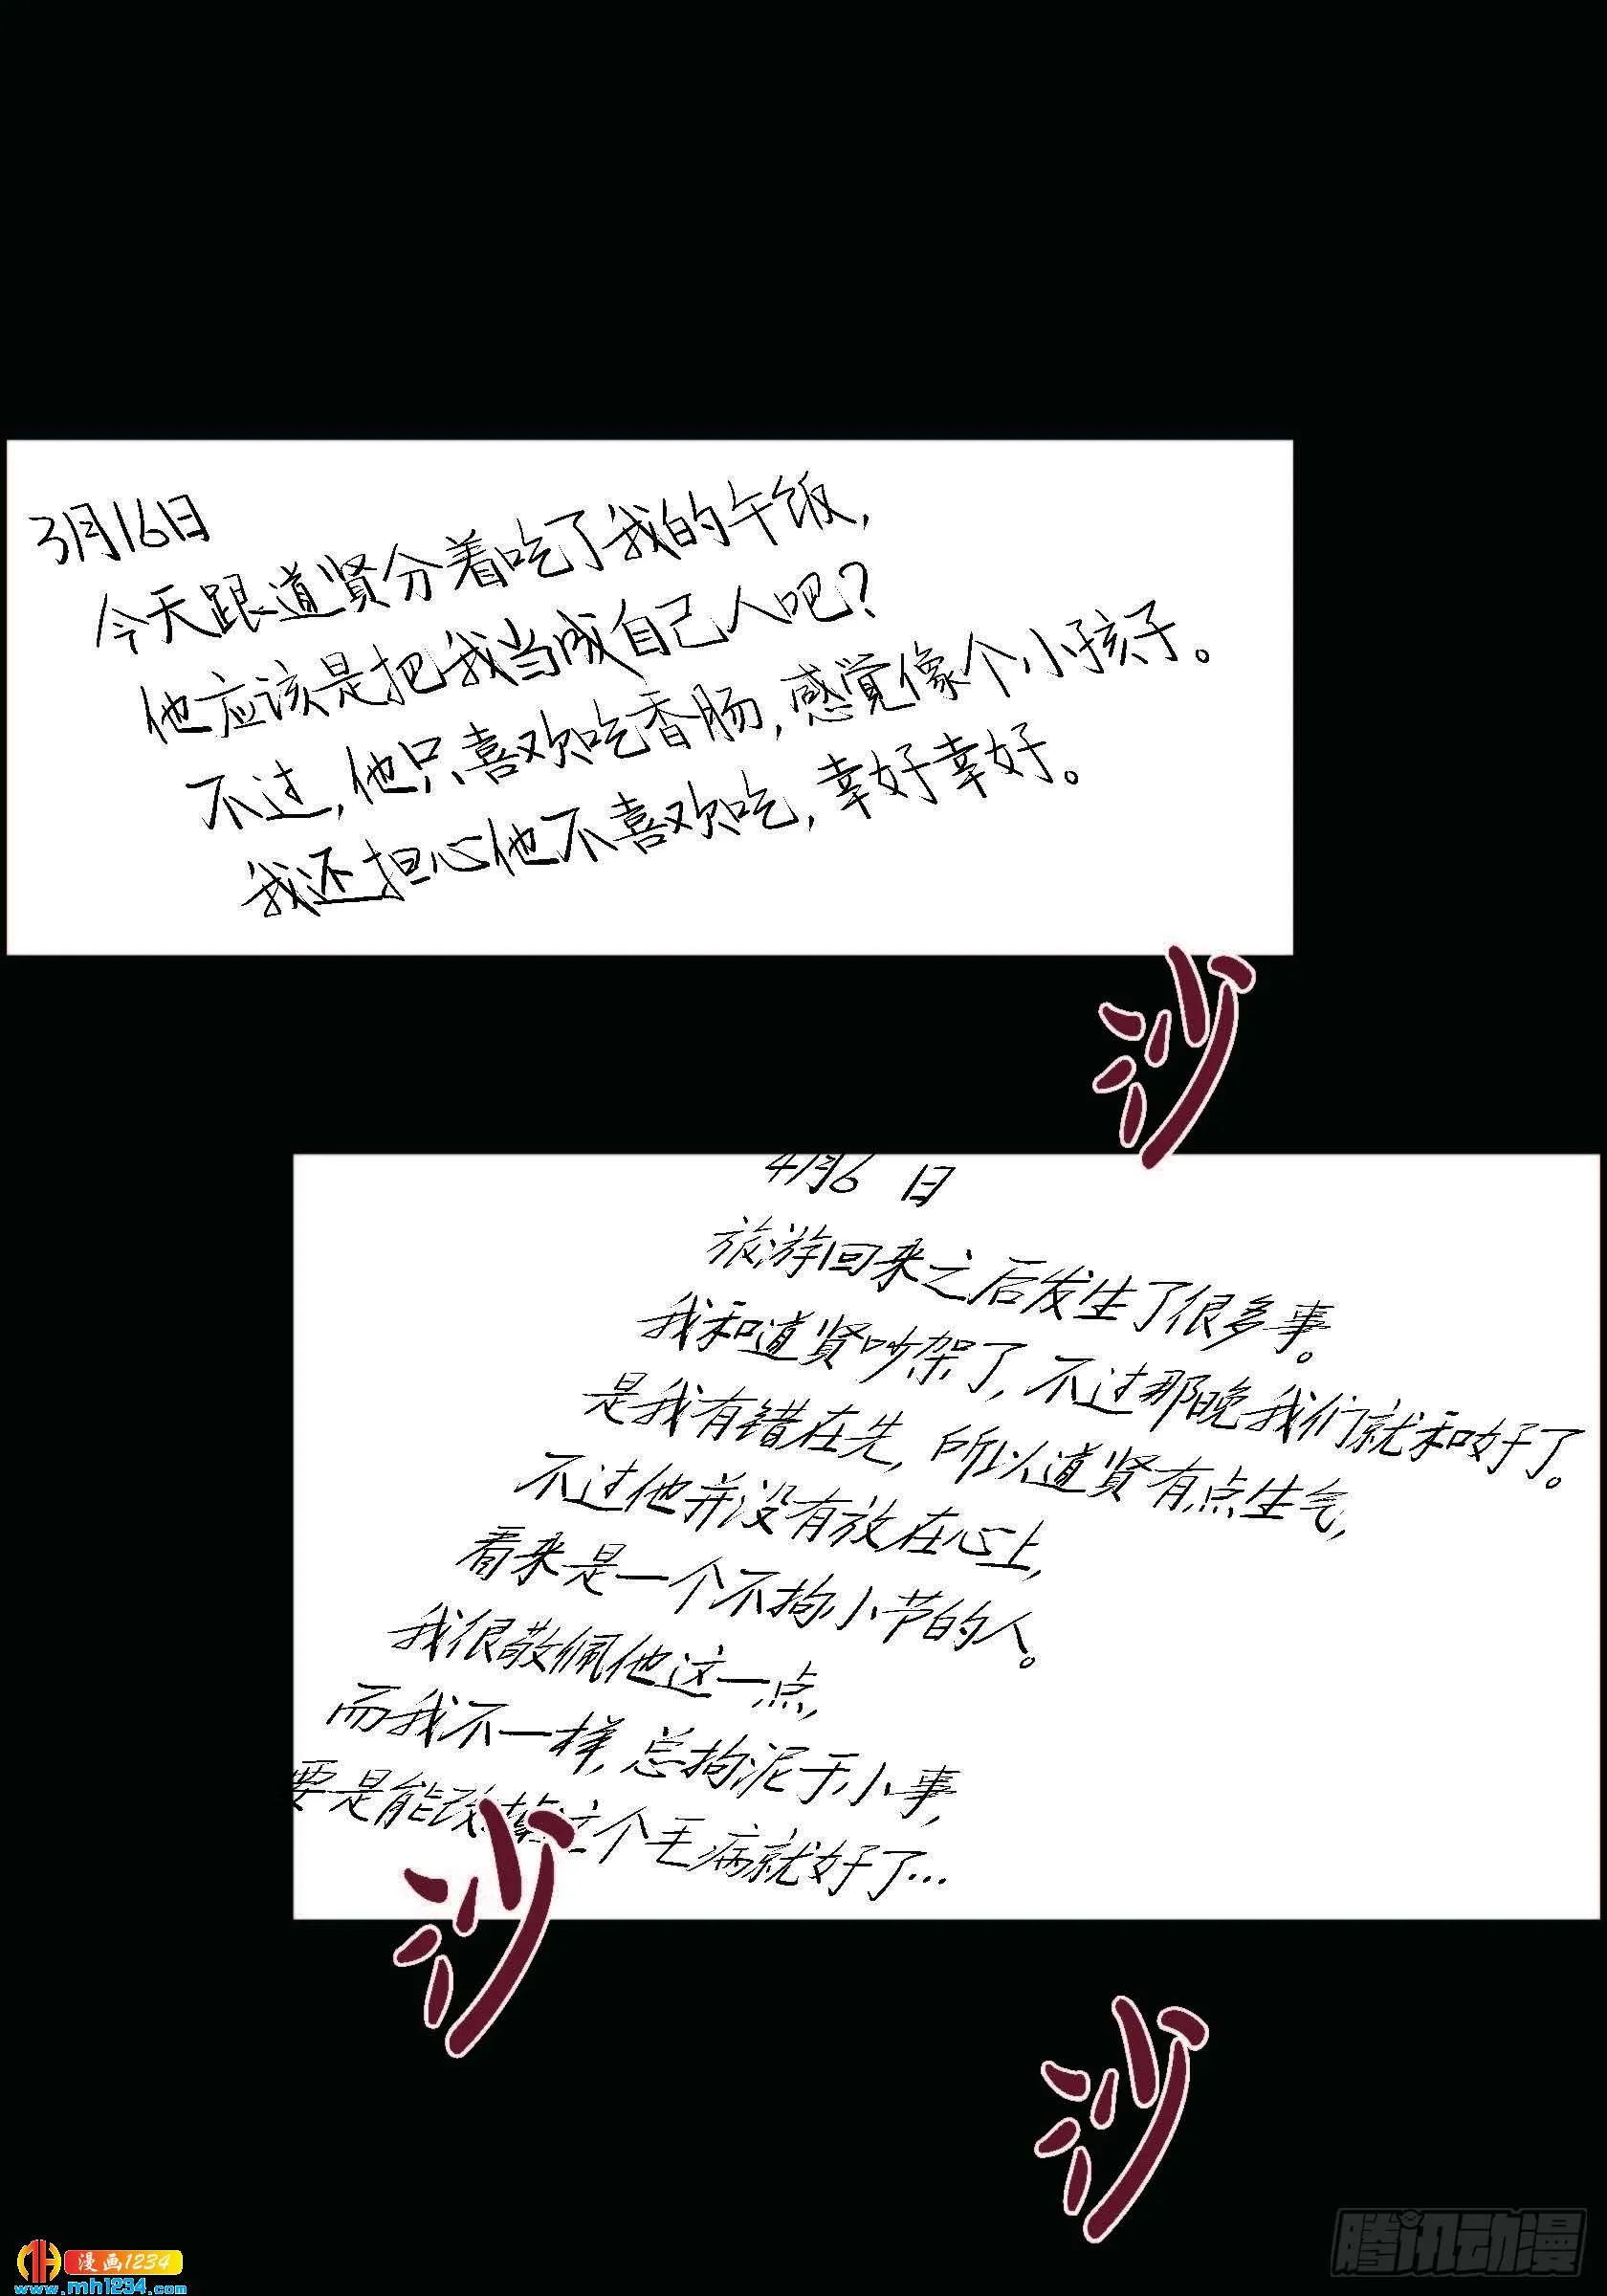 3月16日
今天跟道贤分着吃了我的午饭,
他应该是把我当成自己人吧?
不过,他只喜欢吃香肠,感觉像个小孩子。
我还担心他不喜欢吃,幸好幸好。
沙
4月6日
旅游回来之后发生了很多事。
我和道贤吵架了,不过那晚我们就和好了。
是我有错在先,所以道贤有点生气,
不过他并没有放在心上,
看来是一个不拘小节的人。
我很敬佩他这一点,
而我不一样,总拘泥于小事,
要是能改掉这个毛病就好了…
沙
沙
漫画1234
www.mh1234.com
腾讯动漫